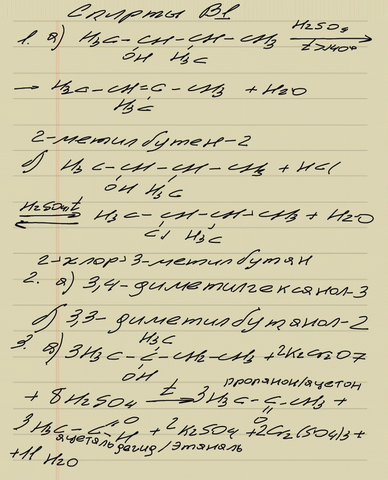 Спирты В1
1. а) H3C–CH–CH–CH3 H2SO4
OH H3C t>140°
→ H3C–CH=C–CH3 + H2O
H3C
2-метилбутен-2
б) H3C–CH–CH–CH3 + HCl
OH H3C
H2SO4, t
H3C–CH–CH–CH3 + H2O
Cl H3C
2-хлор-3-метилбутан
2. а) 3,4-диметилгексанол-3
б) 3,3-диметилбутанол-2
H3C
3. а) 3H3C–C–CH2–CH3 + 2K2Cr2O7
OH
пропанон/ацетон
+ 8H2SO4 t → 3H3C–C–CH3 +
O
3H3C–C=O + 2K2SO4 + 2Cr2(SO4)3 +
H
ацетальдегид/этаналь
+ 11 H2O